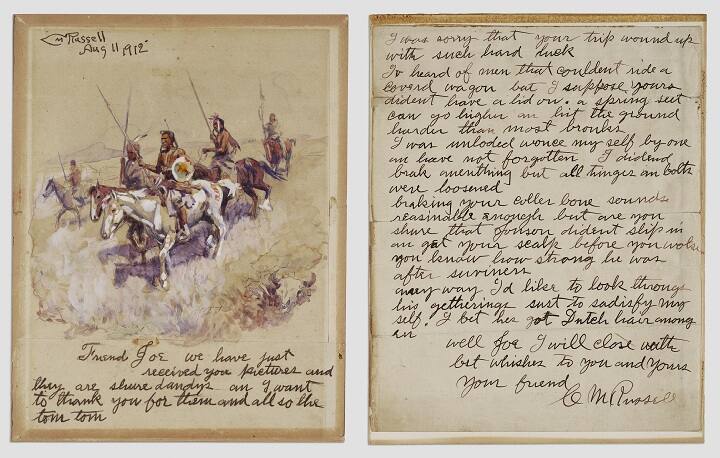 CM Russell
Aug 11 1912
Friend Joe we have just
received you pictures and
they are shure dandys an I want
to thank you for them and all so the
tom tom
I was sorry that your trip wound up
with such hard luck
Iv heard of men that couldent ride a
coverd wagon but I suppose yours
dident have a lid on. a spring seet
can go higher an hit the ground
harder than most bronks
I was unloded wonce my self by one
an have not forgotten I didend
brak anything but all hinges an bolts
were loosened
braking your coller bone sounds
reasinable enough but are you
shure that Jonson dident slip in
an get your scalp before you woke
you know how strong he was
after suviners
any way I'd like to look through
his getherings just to sadisfy my
self. I bet hes got Dutch hair among
well Joe I will close with
best whishes to you and yours
your friend
C M Russell